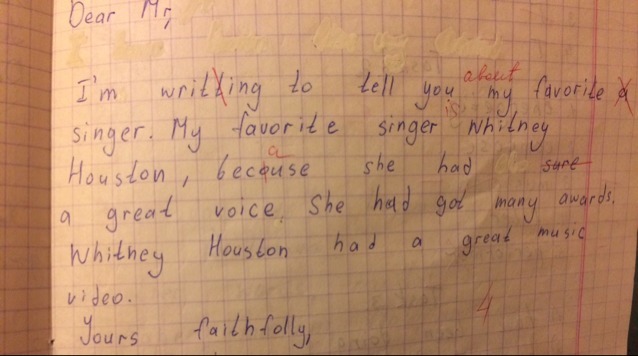 Dear Mr,
about
I'm writting to tell you my favorite a
is
singer. My favorite singer Whitney
a
Houston, becouse she had sure
a great voice. She had got many awards.
Whitney Houston had a great music
video.
4
Yours faithfolly,